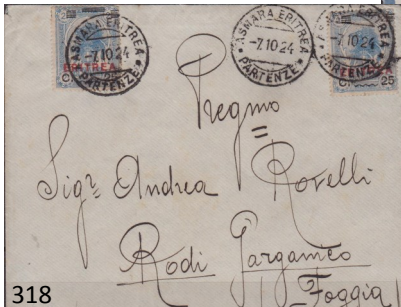 ASMARA ERITREA
-7.10.24
* PARTENZE *
ERITREA
ASMARA ERITREA
-7.10.24
* PARTENZE *
ASMARA ERITREA
-7.10.24
* PARTENZE *
25
Pregmo
Sigr Andrea Rovelli
Rodi Garganico
(Foggia)
318